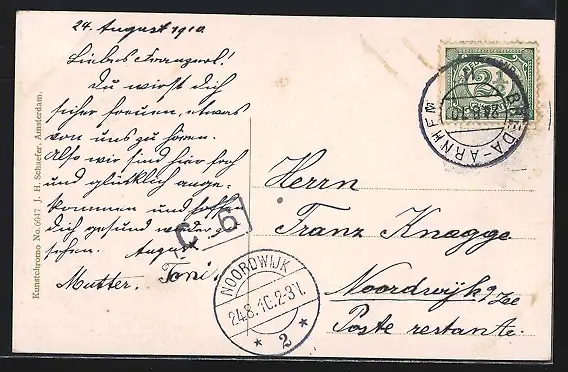 24. August 1910.
Liebes Franzerl!
Du wirst dich
sicher freuen, etwas
von uns zu hören.
Also wir sind hier froh
und glücklich ange-
kommen und hoffen
dich gesund wieder zu
sehen. August
Mutter. Toni.
Kunstchromo No. 6047 J. H. Schaefer, Amsterdam.
2½
BREDA-ARNHEM
C 6
NOORDWIJK
24.8.10.2-3V.
* 2 *
Herrn
Franz Knegge
Noordwijk a/ Zee
Poste restante.